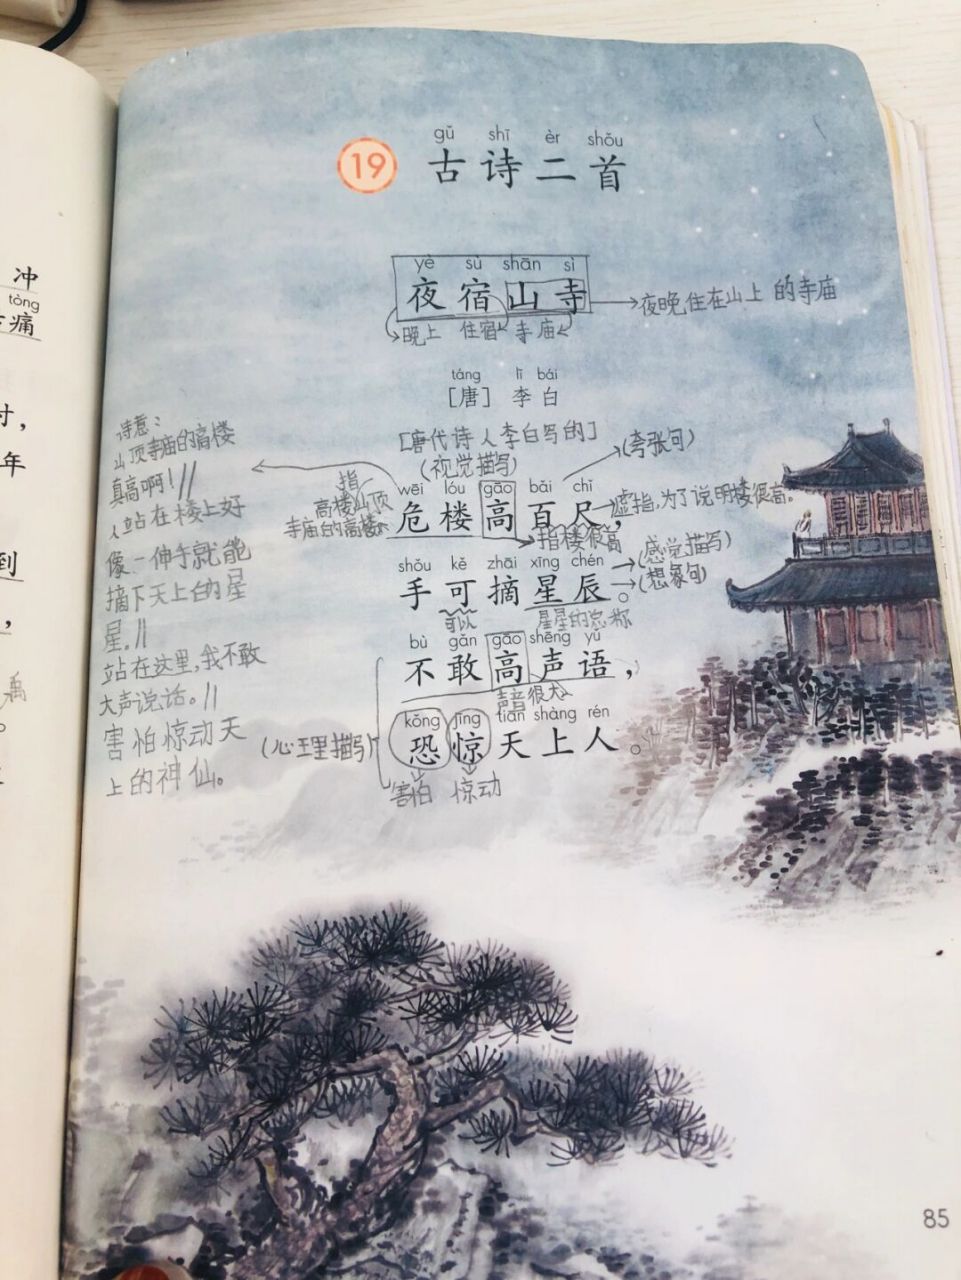 冲
tòng
痛
时，
年
到
，
禹
。
gǔ shī èr shǒu
19 古诗二首
yè sù shān sì
夜宿山寺
夜晚住在山上的寺庙
晚上 住宿 寺庙
táng lǐ bái
［唐］ 李白
[唐代诗人李白写的]
(视觉描写)
(夸张句)
指
高楼山顶
寺庙的高楼
wēi lóu gāo bǎi chǐ
危楼高百尺，
虚指,为了说明楼很高。
指楼很高
shǒu kě zhāi xīng chén
手可摘星辰。
(感觉描写)
(想象句)
可以 星星的总称
bù gǎn gāo shēng yǔ
不敢高声语，
声音很大
kǒng jīng tiān shàng rén
恐惊天上人。
(心理描写)
害怕 惊动
诗意：
山顶寺庙的高楼
真高啊！//
人站在楼上好
像一伸手就能
摘下天上的星
星。//
站在这里,我不敢
大声说话。//
害怕惊动天
上的神仙。
85